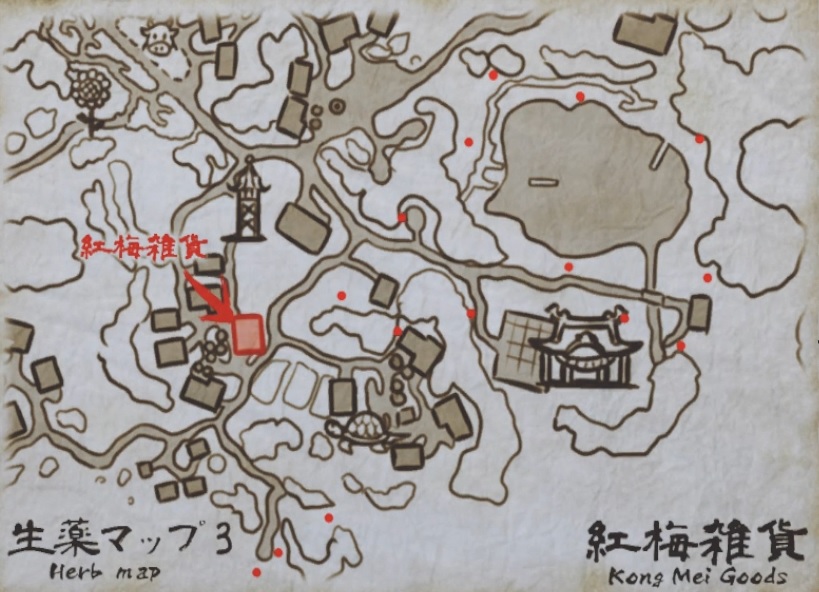 紅梅雑貨
生薬マップ3
Herb map
紅梅雑貨
Kong Mei Goods